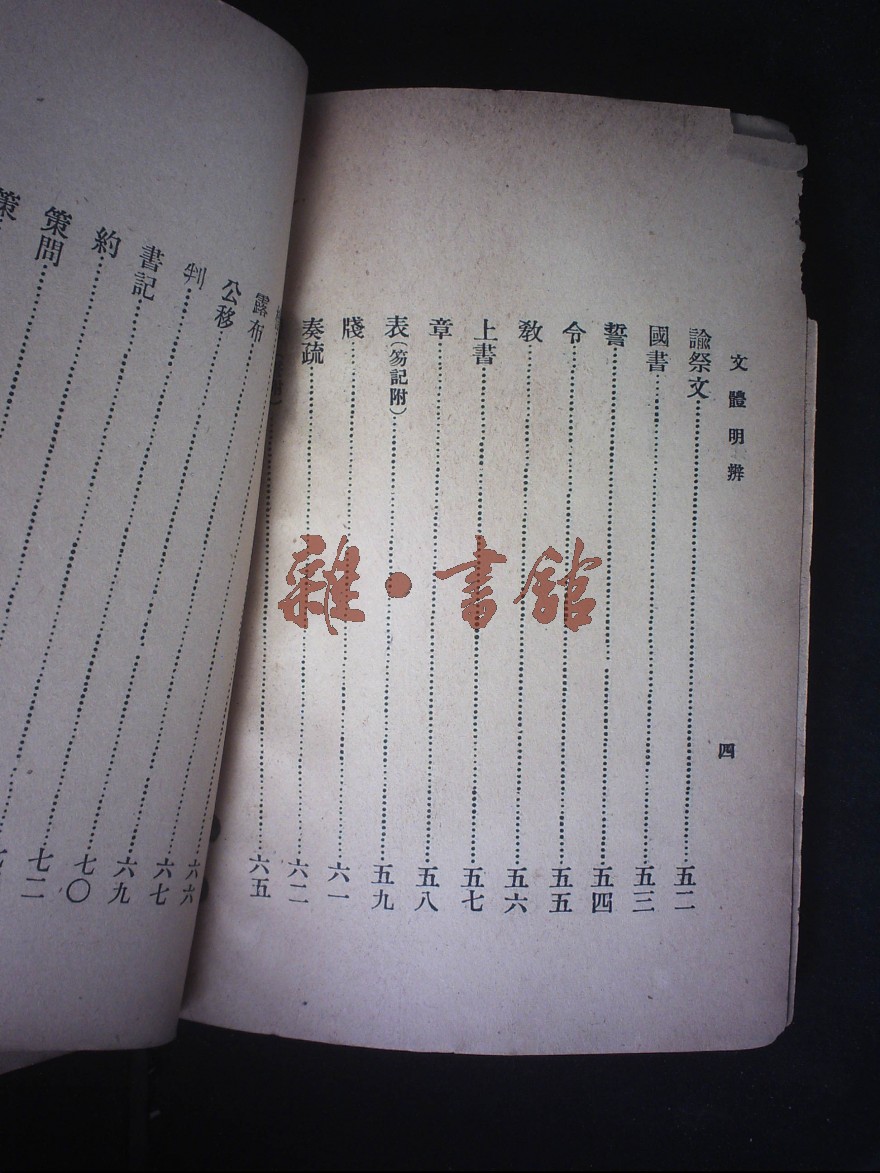 文體明辨
四
諭祭文……五二
國書……五三
誓……五四
令……五五
敎……五六
上書……五七
章……五八
表(笏記附)……五九
牋……六一
奏疏……六二
……六五
露布……六六
公移……六七
判……六九
書記……七〇
約……七二
策問……七
策
雜·書館